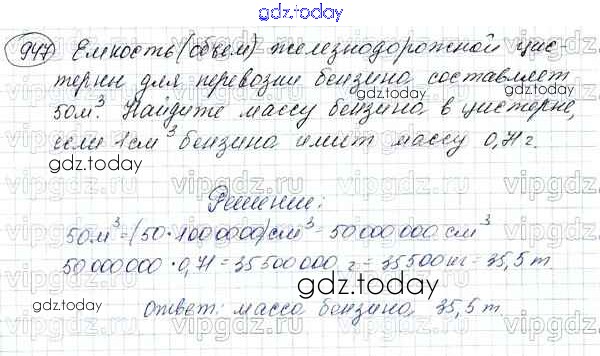 gdz.today
947 Емкость (объем) железнодорожной цис-
терны для перевозки бензина составляет
50м³. Найдите массу бензина в цистерне,
если 1см³ бензина имеет массу 0,71 г.
gdz.today
Решение:
50м³=(50·1000000)см³=50000000см³
50000000·0,71=35500000 г=35500кг=35,5т.
gdz.today
gdz.today
Ответ: масса бензина 35,5т.